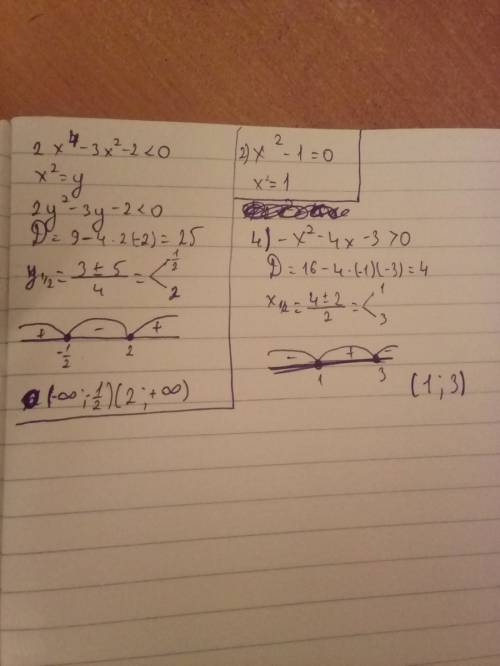 2x⁴-3x²-2<0
x²=y
2y²-3y-2<0
D=9-4·2(-2)=25
y₁/₂=(3±5)/4=< -1/2
2
+ - +
-1/2 2
(-∞;-1/2)(2;+∞)
2) x²-1=0
x²=1
4) -x²-4x-3>0
D=16-4·(-1)(-3)=4
x₁/₂=(4±2)/2=< 1
3
- + -
1 3
(1;3)